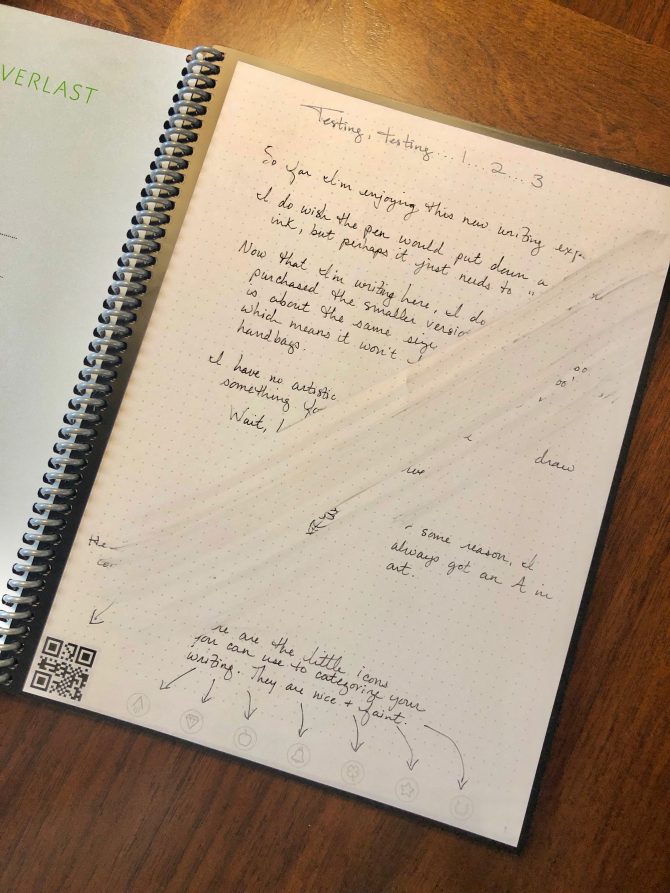 VERLAST
Testing, testing... 1... 2... 3
So far I'm enjoying this new writing exp
I do wish the pen would put down a
ink, but perhaps it just needs to "
Now that I'm writing here, I do
purchased the smaller versio
is about the same size
which means it won't
handbags.
I have no artistic
something fo
Wait, I
draw
we
some reason, I
always got an A in
art.
the
re are the little icons
you can use to categorize your
writing. They are nice + faint.